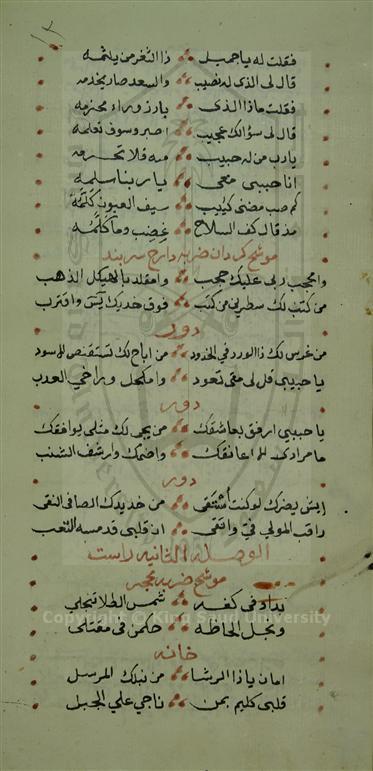 ١٣
فقلت له يا جميل ذا الثغر من يلثمه
قال لى الذى له نصيب والسعد صار يخدمه
فقلت ماذا الذى يا رزوراء محزمه
قال لى سؤالك عجيب اصبر وسوف تعلمه
يا رب من له حبيب منه فلا تحرمه
انا حبيبى معى يا ربنا سلمه
كم صب مضنى كئيب سيف العيون كلمه
مذ قال كف السلاح غضب وما كلمه
موشح كردان ضربه دارج سربند
وا محجب ربى عليك حجب وا مقلد بالهيكل الذهب
من كتب لك سطرين من كتب فوق خديك آيس واقترب
دور
من غرس لك ذا الورد فى الخدود من اباح لك تستقنص للاسود
يا حبيبى قل لى متى تعود وا مكحل وراخي العدب
دور
يا حبيبى ارفق بعاشقك من يجى لك مثلى يوافقك
ما مرادى للم اعانقك واضمك وارشف الشنب
دور
ايش يضرك لو كنت أشتفى من خديدك الصافى النقى
راقب المولى فيّ واتقى ان قلبى قد مسه التعب
الوصله الثانيه راست
موشح ضربه محجر
بداد فى كفه شمس الطلا تنجلي
وبخل الحاظه حكمن فى مقتلى
خانه
امان ياذا الرشا من نبلك المرسل
قلبى كليم بمن ناجي علي الجبل
Copyright © King Saud University